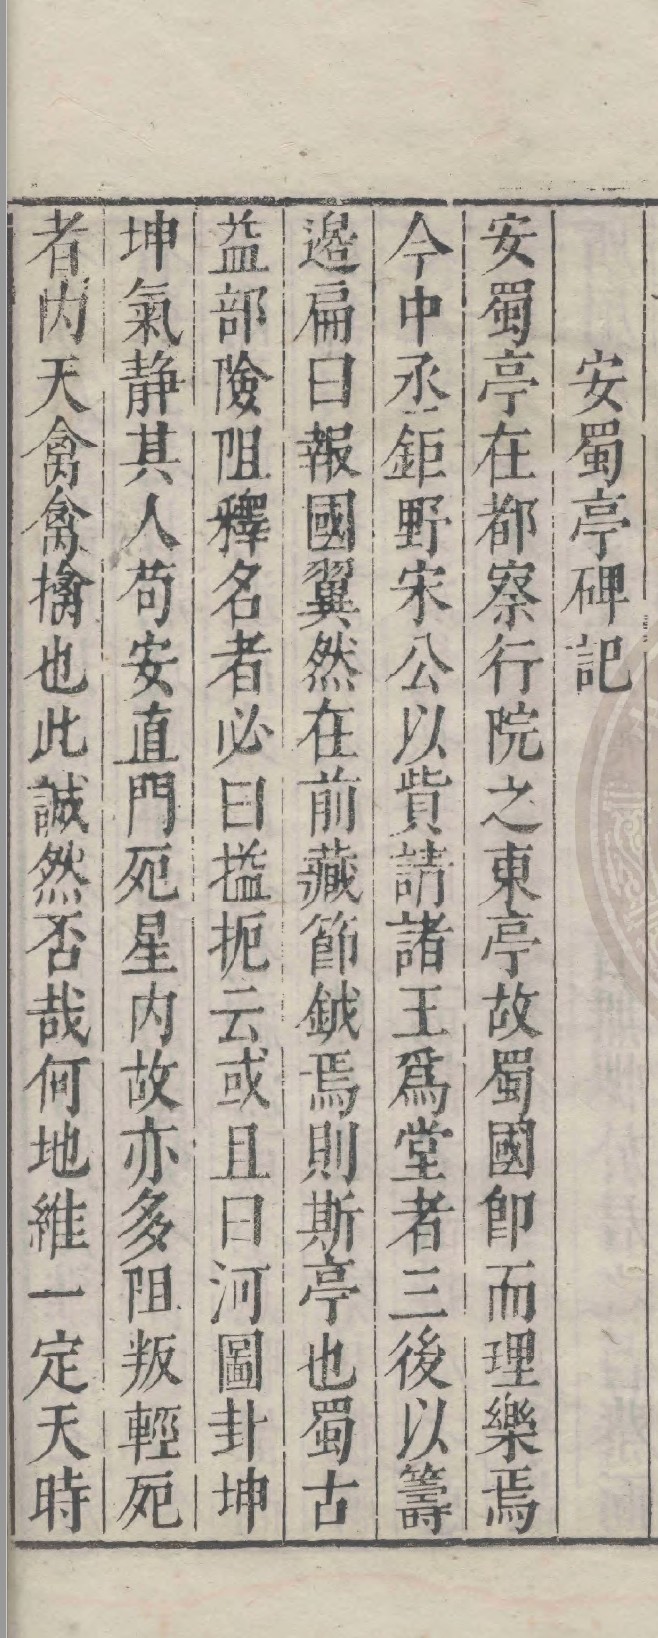 安蜀亭碑記
安蜀亭在都察行院之東亭故蜀國卽而理樂焉
今中丞鉅野宋公以貲請諸王爲堂者三後以籌
邉扁曰報國翼然在前藏節鉞焉則斯亭也蜀古
益部險阻釋名者必曰搤扼云或且曰河圖卦坤
坤氣靜其人苟安直門死星内故亦多阻叛輕死
者内天禽禽擒也此誠然否哉何地維一定天時